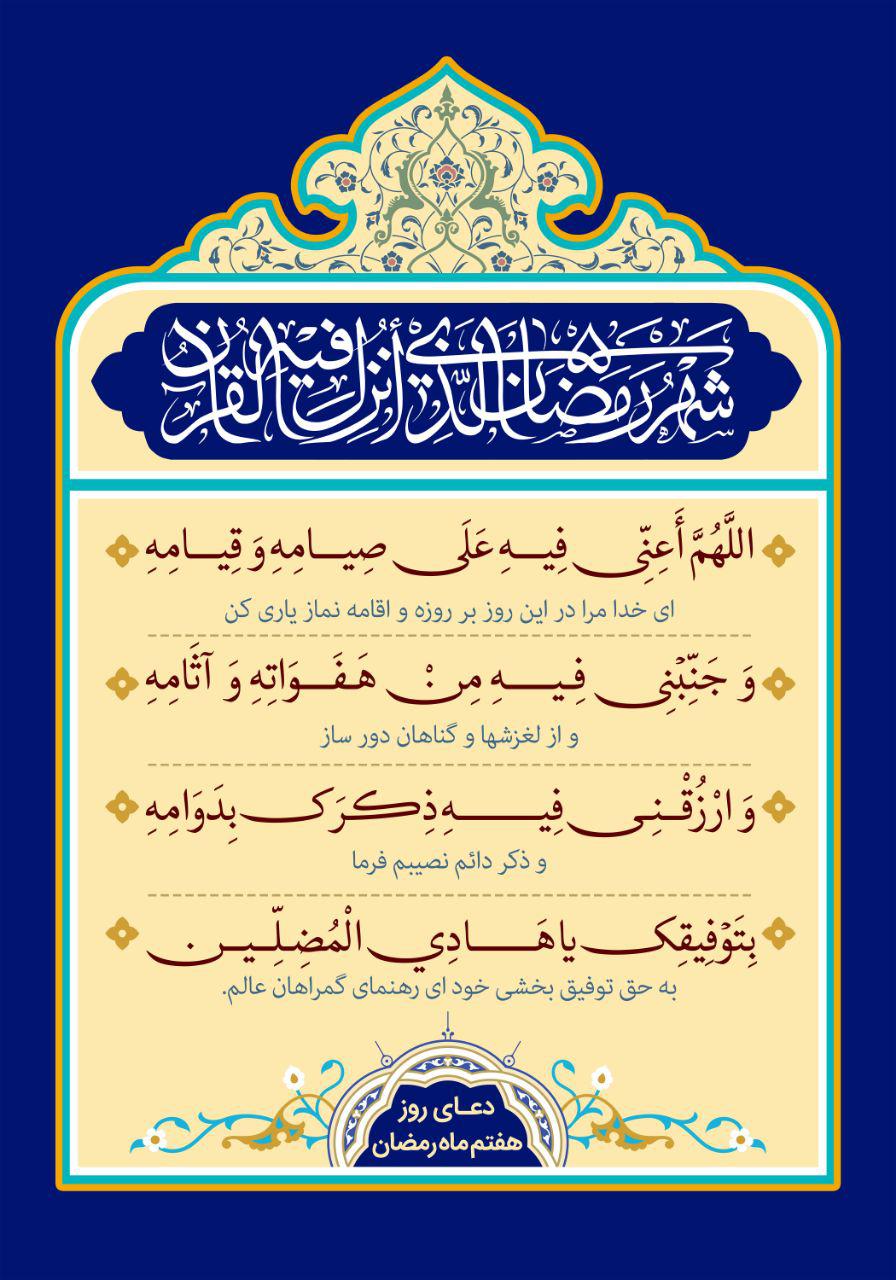 شهر رمضان الذي أنزل فيه القرآن
اللَّهُمَّ أَعِنِّی فِیهِ عَلَی صِیامِهِ وَ قِیامِهِ
ای خدا مرا در این روز بر روزه و اقامه نماز یاری کن
وَ جَنِّبْنِی فِیهِ مِنْ هَفَوَاتِهِ وَ آثَامِهِ
و از لغزشها و گناهان دور ساز
وَ ارْزُقْنِی فِیهِ ذِکرَک بِدَوَامِهِ
و ذکر دائم نصیبم فرما
بِتَوْفِیقِک یا هَادِي الْمُضِلِّین
به حق توفیق بخشی خود ای رهنمای گمراهان عالم.
دعای روز
هفتم ماه رمضان